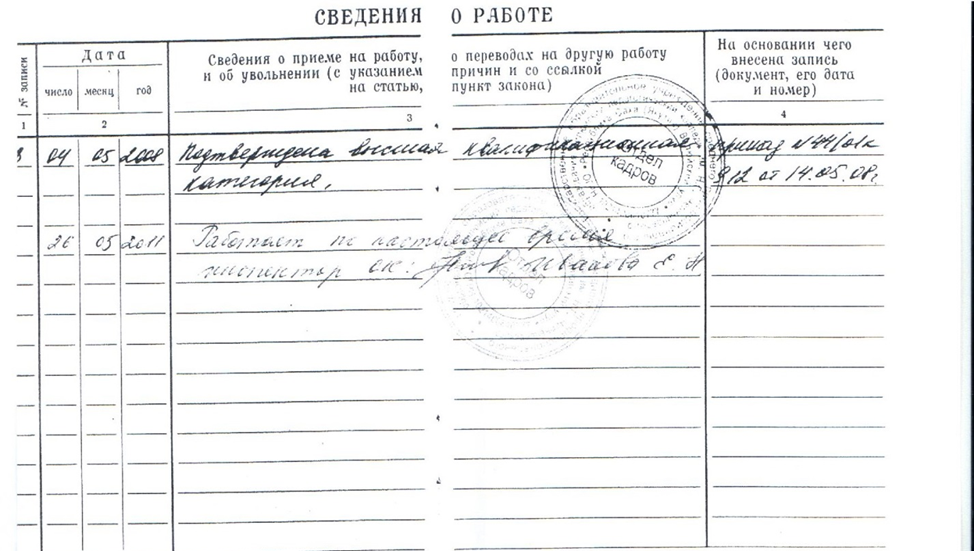 СВЕДЕНИЯ О РАБОТЕ
№ записи
Дата
число месяц год
Сведения о приеме на работу, о переводах на другую работу
и об увольнении (с указанием причин и со ссылкой
на статью, пункт закона)
На основании чего
внесена запись
(документ, его дата
и номер)
1 2 3 4
04 05 2008 Подтверждена высшая квалификационная приказ
категория. от 14.05.08г.
26 05 2011 Работает по настоящее время
инспектор ок: Иванова Е. Н
Отдел
кадров
Отдел
кадров